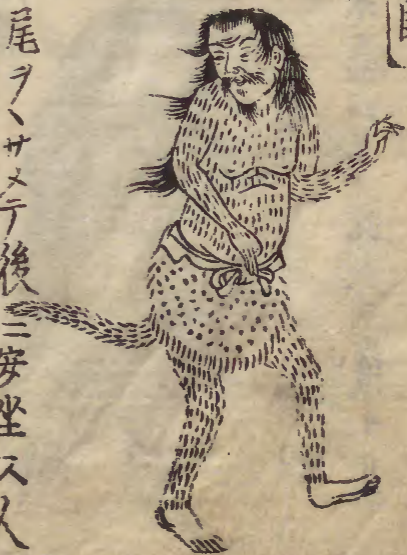 尾ヲヽサメテ後ニ安坐ス人